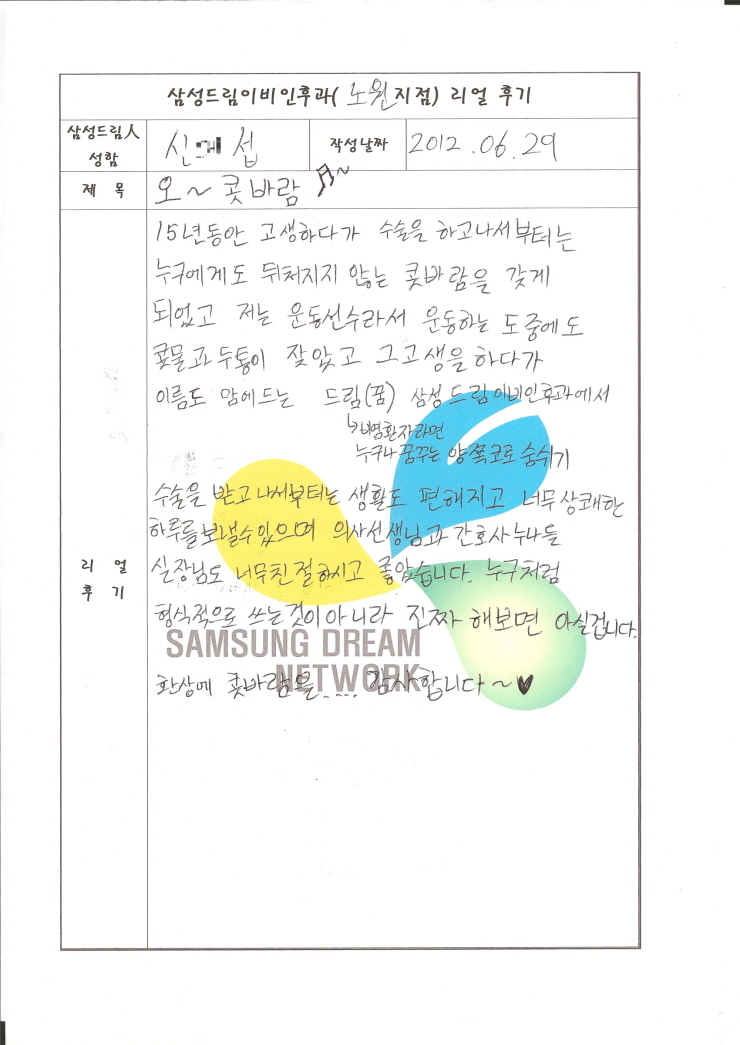 삼성드림이비인후과( 노원지점) 리얼 후기
삼성드림人 성함 신 섭 작성날짜 2012.06.29
제 목 오~ 콧바람 ♬~
15년동안 고생하다가 수술을 하고나서부터는
누구에게도 뒤처지지 않는 콧바람을 갖게
되었고 저는 운동선수라서 운동하는 도중에도
콧물과 두통이 잦았고 그고생을 하다가
이름도 맘에드는 드림(꿈) 삼성드림이비인후과에서
↳비염환자라면
누구나 꿈꾸는 양쪽코로 숨쉬기
수술을 받고나서부터는 생활도 편해지고 너무상쾌한
하루를보낼수있으며 의사선생님과 간호사누나들
리 얼 후 기
실장님도 너무친절하시고 좋았습니다. 누구처럼
형식적으로 쓰는것이아니라 진짜 해보면 아실겁니다.
SAMSUNG DREAM
NETWORK
환상에 콧바람을.... 감사합니다~♥